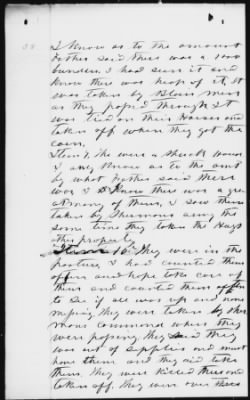 I know as to the amount
Father said there was a 100
bundles I had seen it and
know there was heap of it. It
was taken by Blair's men
as they passed through. It
was tied on their Horses and
taken off when they got the
corn.
Item 9, the were a
I only know as to the amt
by what Father said there
was I do know there was a gre
at many of them, I saw them
taken by Shermans army the
same time they taken the Hogs
other property
Item 10. They were in the
pasture, I had counted them
often and hope take care of
them and counted them often
to see if all was up and none
missing they were taken by Sher
mans command when they
were passing, they said they
was out of supplies and must
have them and they did take
them, they were killed there and
taken off, they were over there